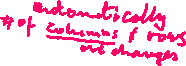 automatically
# of columns & rows
changes